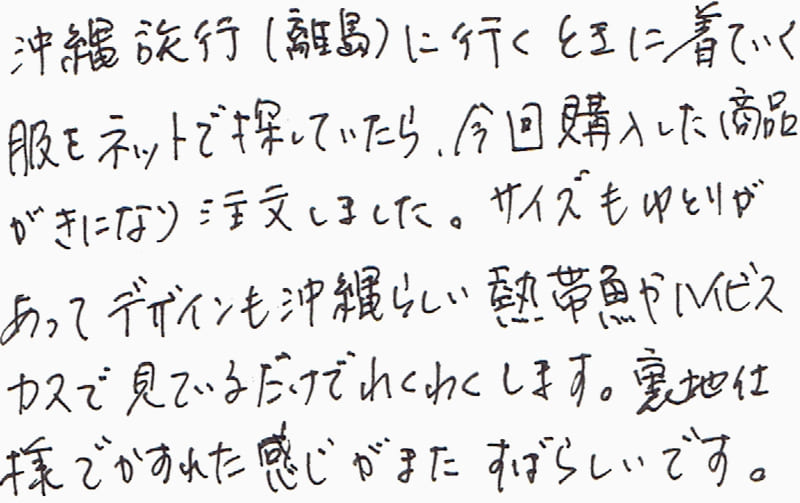 沖縄旅行(離島)に行くときに着ていく
服をネットで探していたら、今回購入した商品
がきになり注文しました。サイズもゆとりが
あってデザインも沖縄らしい熱帯魚やハイビス
カスで見ているだけでわくわくします。裏地仕
様でかすれた感じがまたすばらしいです。